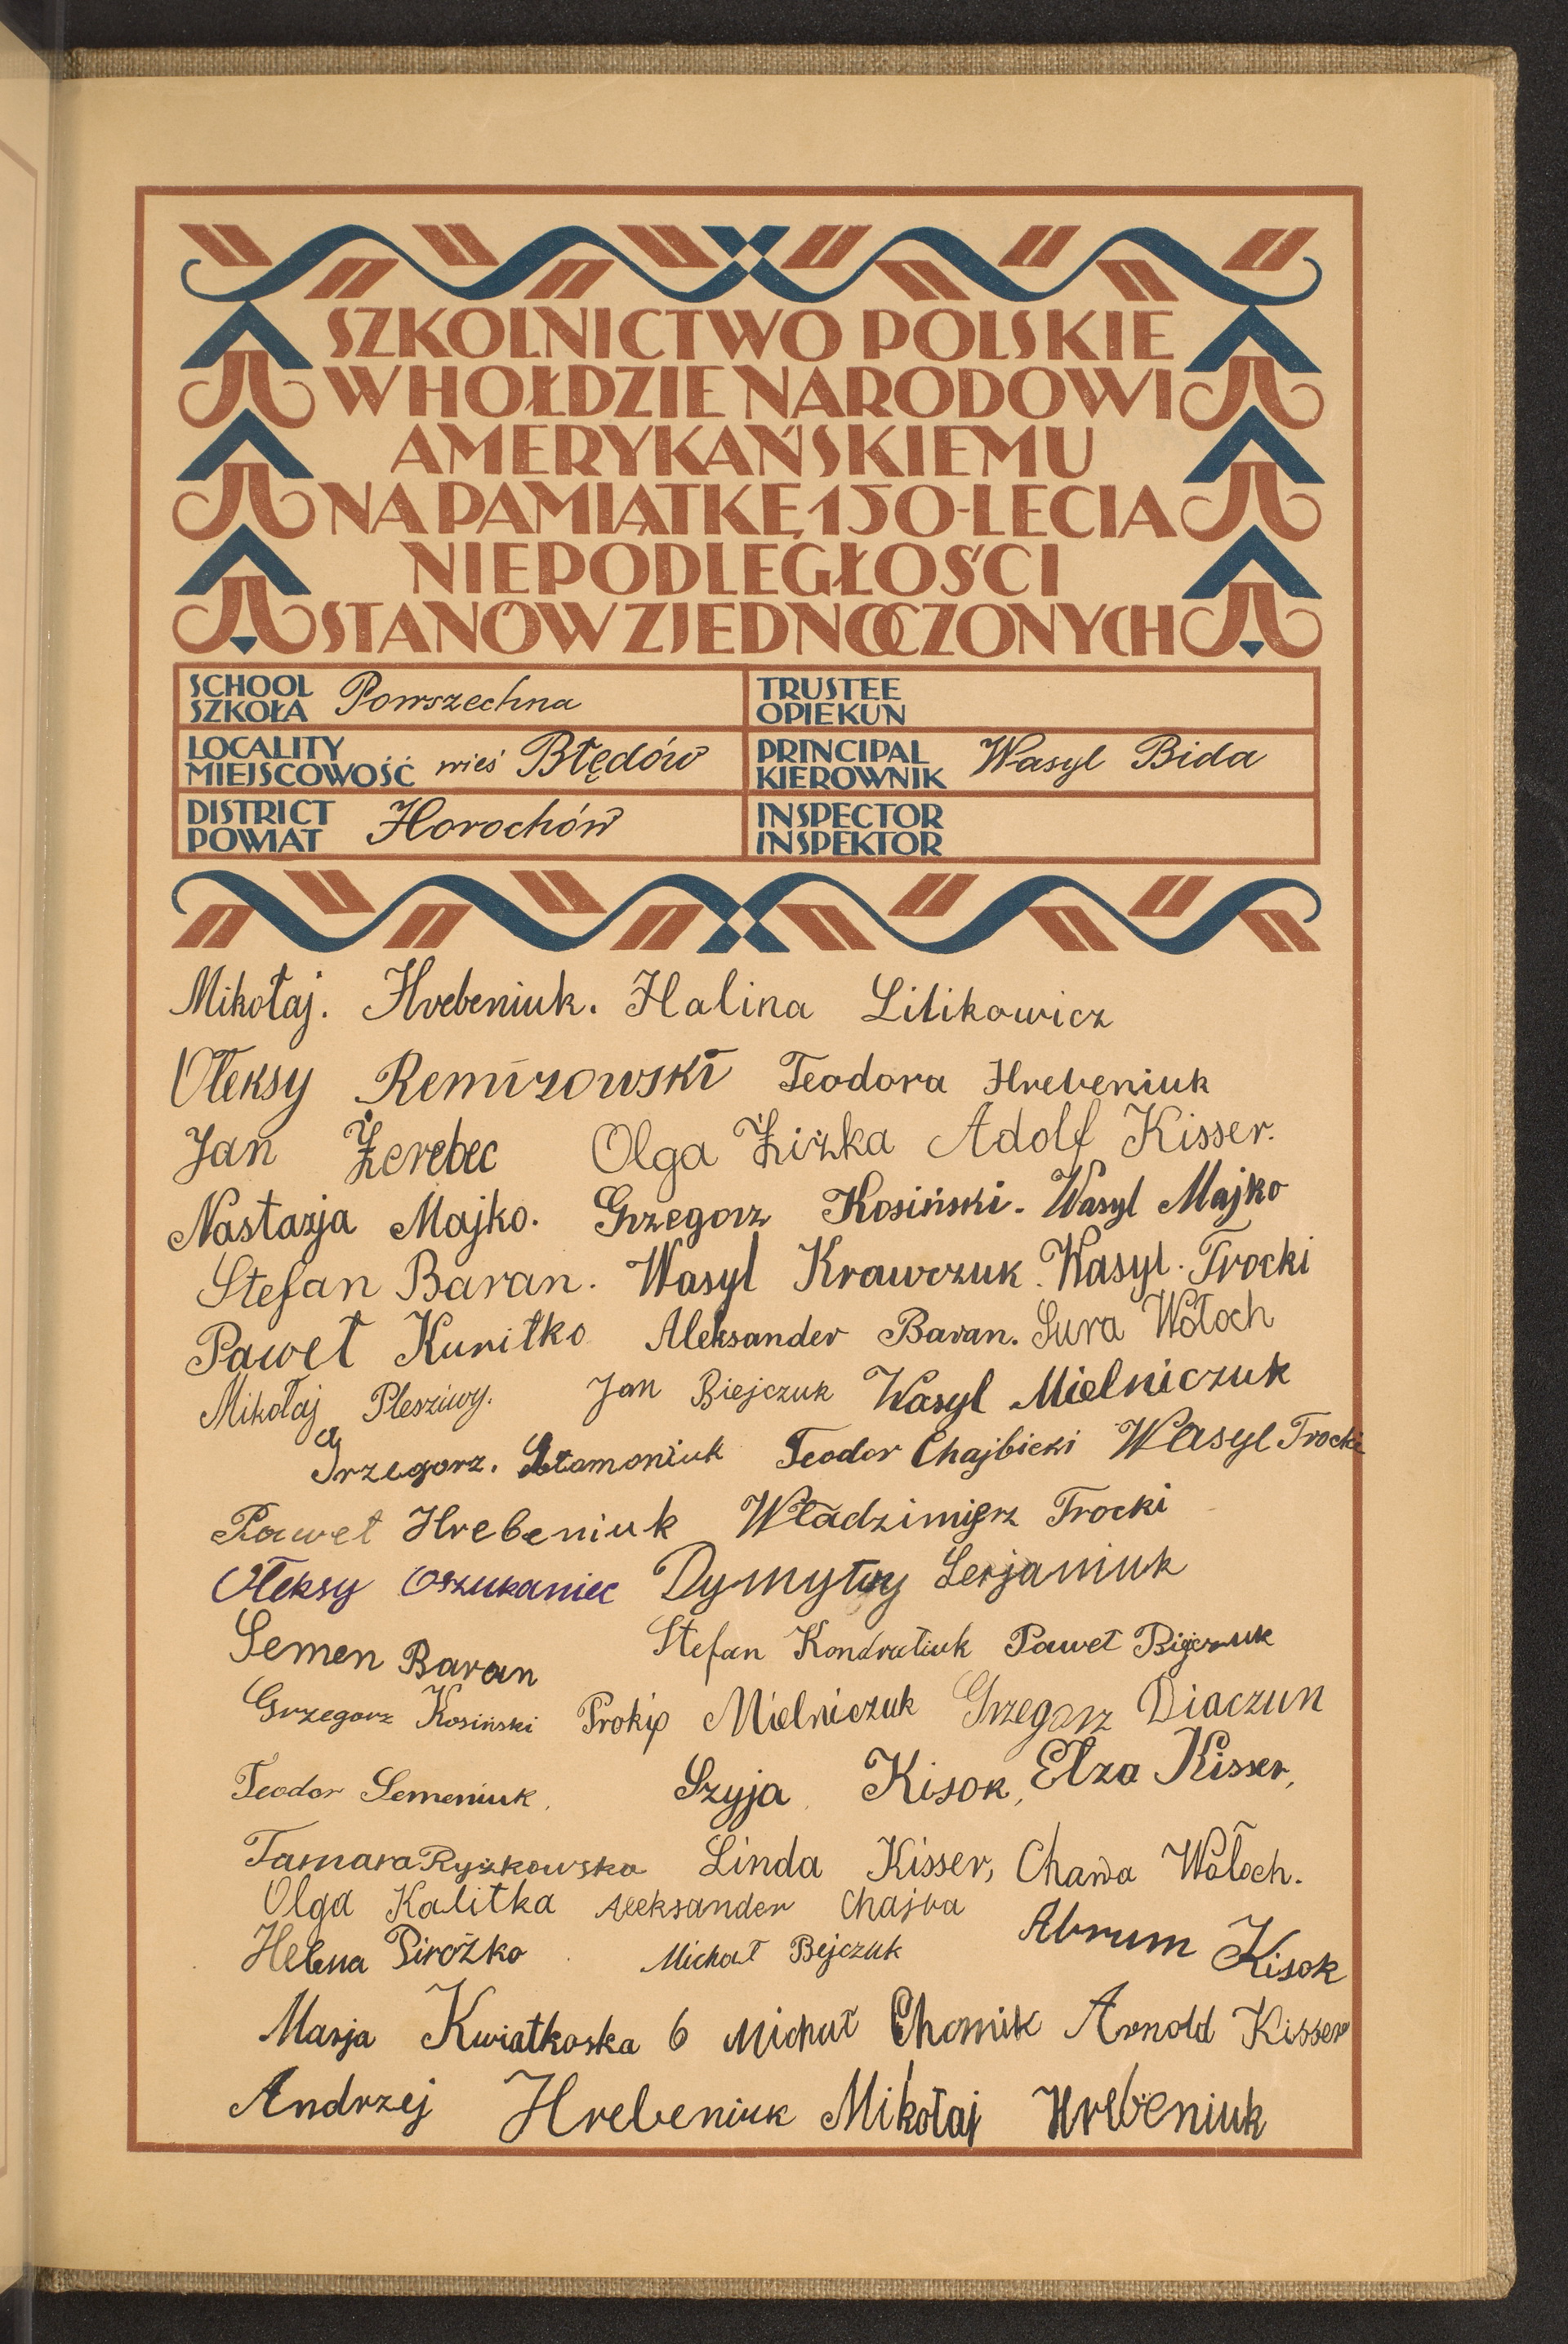 SZKOLNICTWO POLSKIE
W HOŁDZIE NARODOWI
AMERYKAŃSKIEMU
NA PAMIĄTKĘ 150-LECIA
NIEPODLEGŁOŚCI
STANÓW ZJEDNOCZONYCH
SCHOOL
SZKOŁA Powszechna
TRUSTEE
OPIEKUN
LOCALITY
MIEJSCOWOŚĆ wieś Błędów
PRINCIPAL
KIEROWNIK Wasyl Bida
DISTRICT
POWIAT Horochów
INSPECTOR
INSPEKTOR
Mikołaj. Hrebeniuk. Halina Litikowicz
Ołeksy Remizowski Teodora Hrebeniuk
Jan Żerebec Olga Żiżka Adolf Kisser.
Nastazja Majko. Grzegorz Kosiński. Wasyl Majko
Stefan Baran. Wasyl Krawczuk. Wasyl. Trocki
Paweł Kuriłko Aleksander Baran. Sura Wołoch
Mikołaj Plesziwy. Jan Biejczuk Wasyl Mielniczuk
Grzegorz. Teodor Chajbicki Wasyl Trocki
Paweł Hrebeniuk Władzimierz Trocki
Ołeksy Oszukaniec Dymytry Serjaniuk
Semen Baran Stefan Kondratiuk Paweł Bijczuk
Grzegorz Kosiński Prokip Mielniczuk Grzegorz Diaczun
Teodor Semeniuk. Szyja Kisok, Elza Kisser,
Tamara Ryżkowska Linda Kisser, Chawa Wołoch.
Olga Kalitka Aleksander Chajba
Helena Pirożko Michał Bejczuk Abrum Kisok
Marja Kwiatkoska 6 Michał Chomik Arnold Kisser
Andrzej Hrebeniuk Mikołaj Hrebeniuk